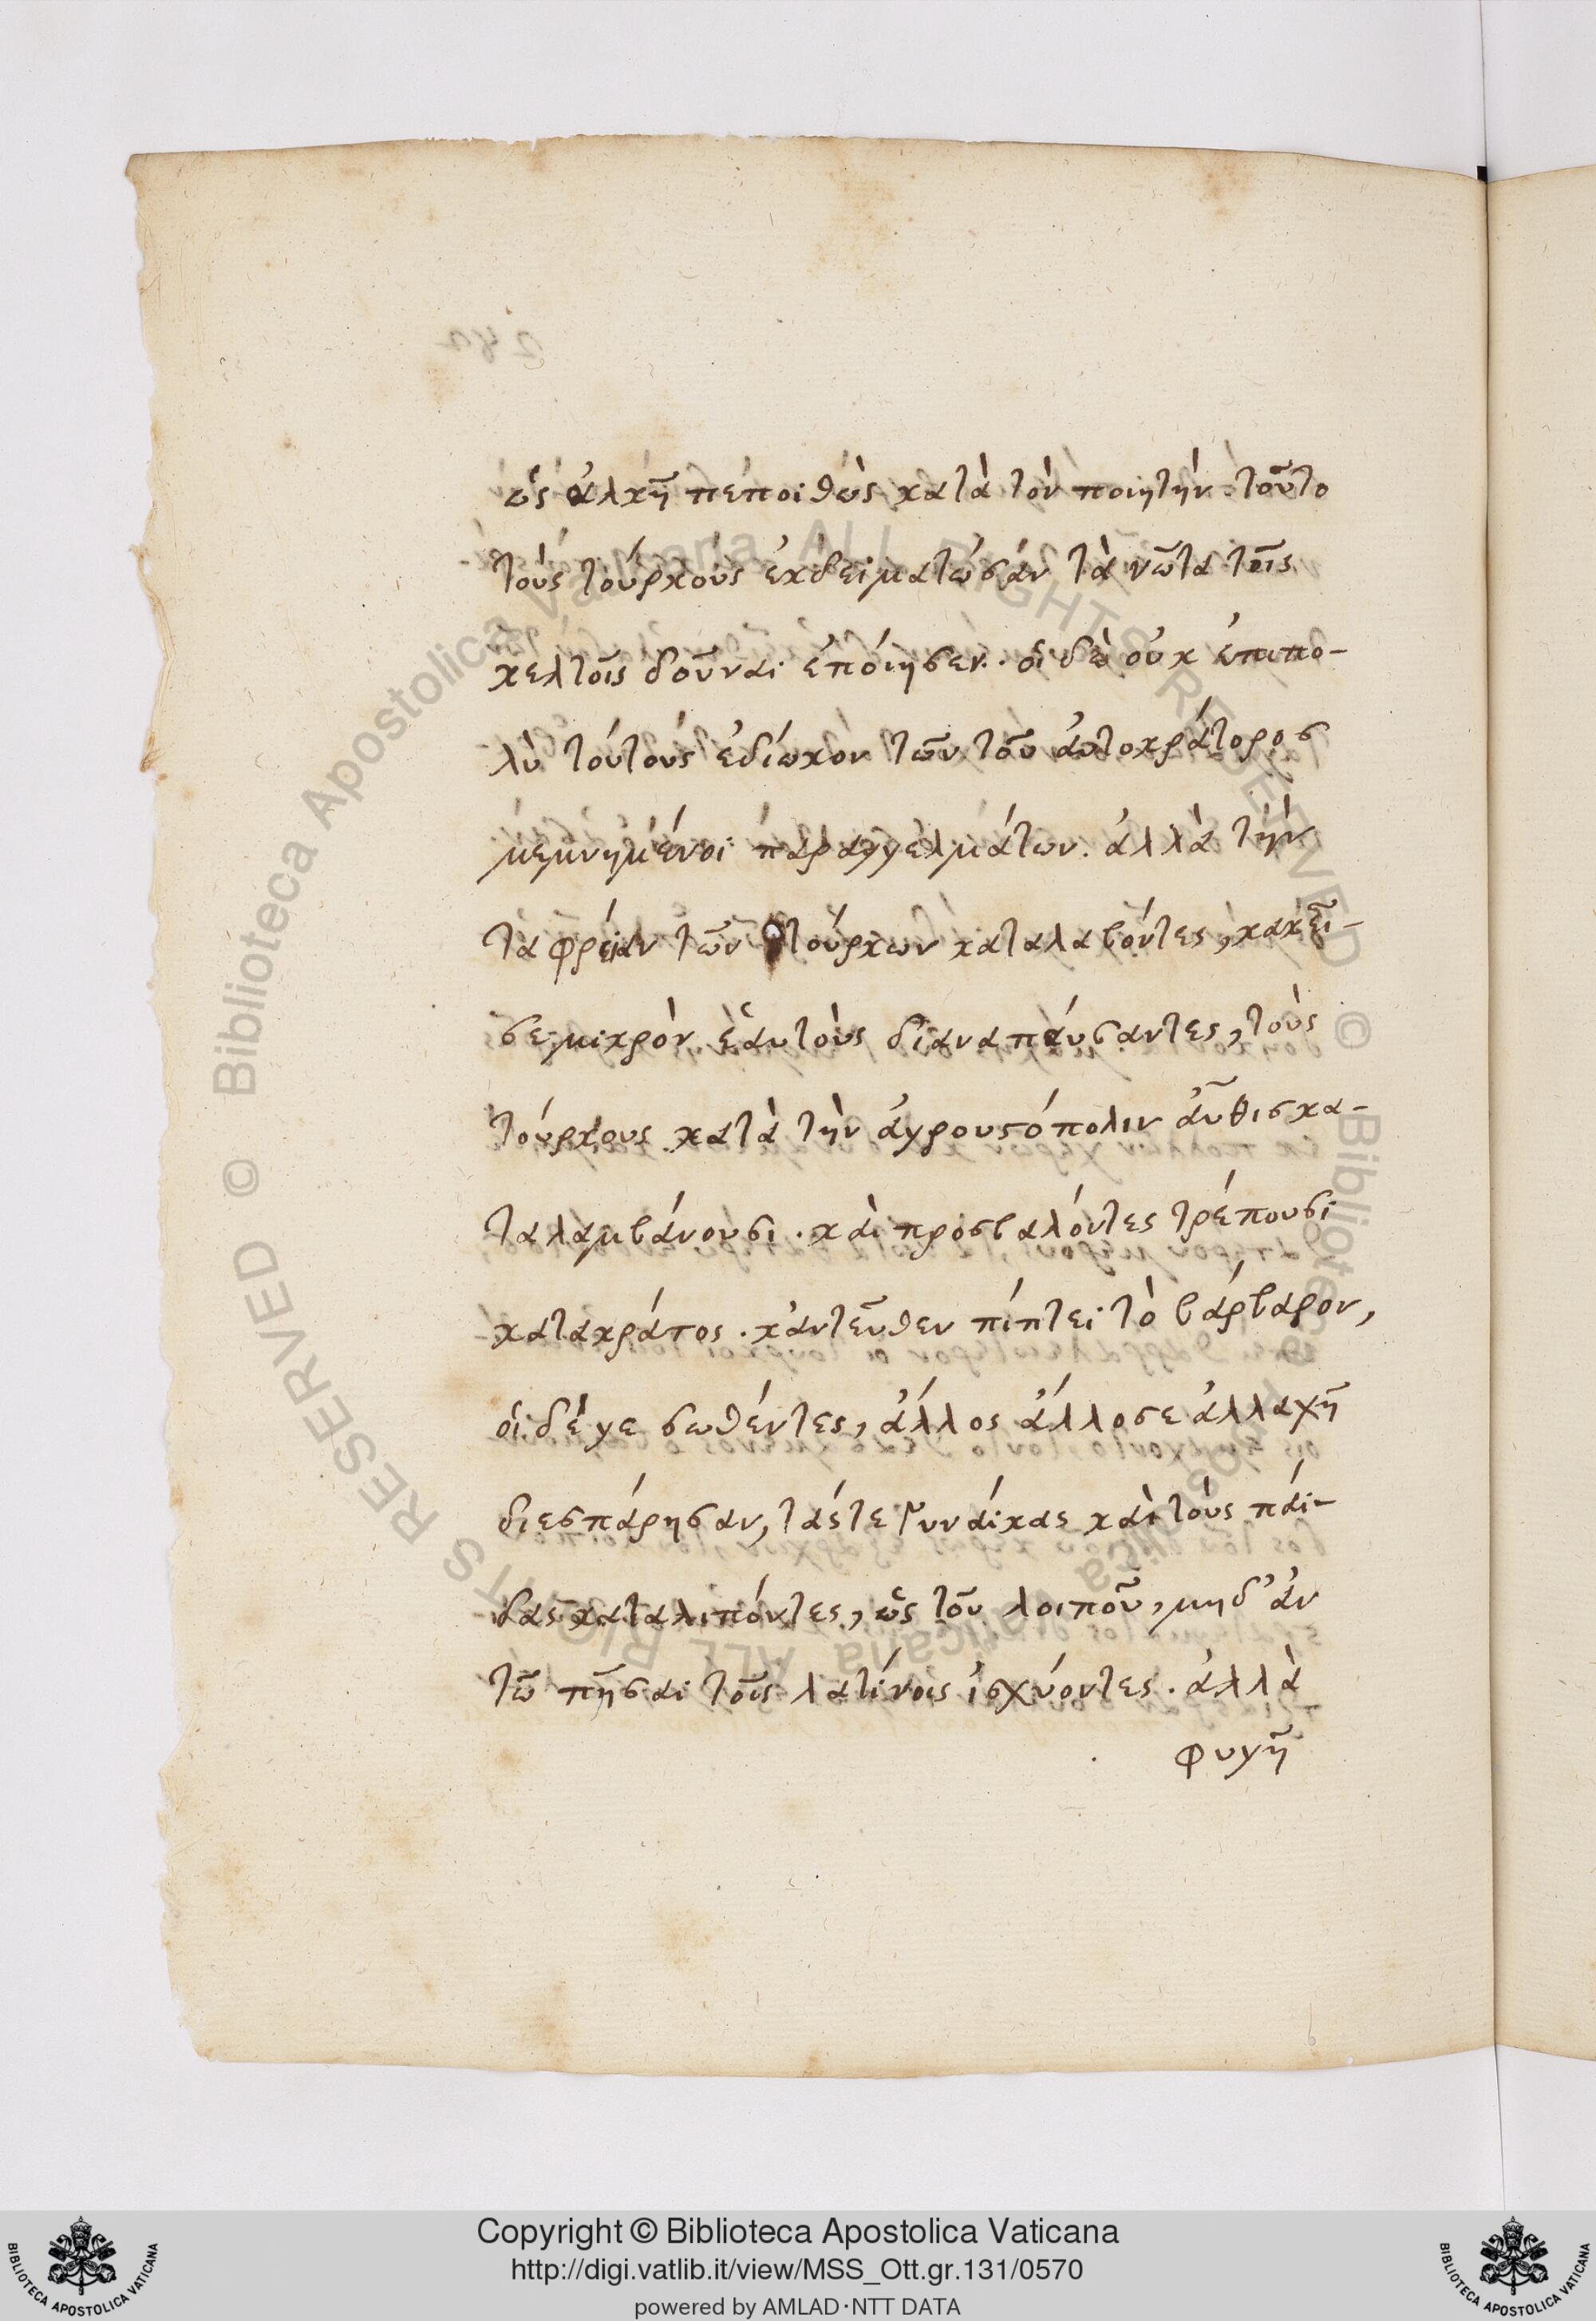 ὡς ἀλκῆ πεποιθὼς κατὰ τὸν ποιητὴν. τοῦτο
τοὺς τούρκους ἐκδειματώσαν τὰ νῶτα τοῖς
κελτοῖς δοῦναι ἐπόιησεν. οἱ δὲ οὐκ ἐπιπο-
λὺ τούτους ἐδίωκον τῶν τοῦ ἀυτοκράτορος
μεμνημένοι παραγγελμάτων. ἀλλὰ τὴν
ταφρείαν τῶν τούρκων καταλαβόντες, κακεῖ-
σε μικρὸν ἑαυτοὺς διαναπάυσαντες, τοὺς
τούρκους κατὰ τὴν ἀυγρουστόπολιν ἀῦθις κα-
ταλαμβάνουσι. κὰι προσβαλόντες τρέπουσι
κατακράτος. κἀντεῦθεν πίπτει τὸ βάρβαρον,
οἱ δέ γε σωθέντες, ἄλλος ἄλλοσε ἀλλαχῆ
διεσπάρησαν, τάς τε γυνάικας κὰι τοὺς πάι-
δας καταλιπόντες, ὡς τοῦ λοιποῦ, μηδ' ἀν
τωπῆσαι τοῖς λατίνοις ἰσχύοντες. ἀλλὰ
φυγῆ
© Biblioteca Apostolica Vaticana ALL RIGHTS RESERVED © Biblioteca Apostolica Vaticana ALL RIGHTS RESERVED
Copyright © Biblioteca Apostolica Vaticana
http://digi.vatlib.it/view/MSS_Ott.gr.131/0570
powered by AMLAD·NTT DATA
BIBLIOTECA APOSTOLICA VATICANA
BIBLIOTECA APOSTOLICA VATICANA